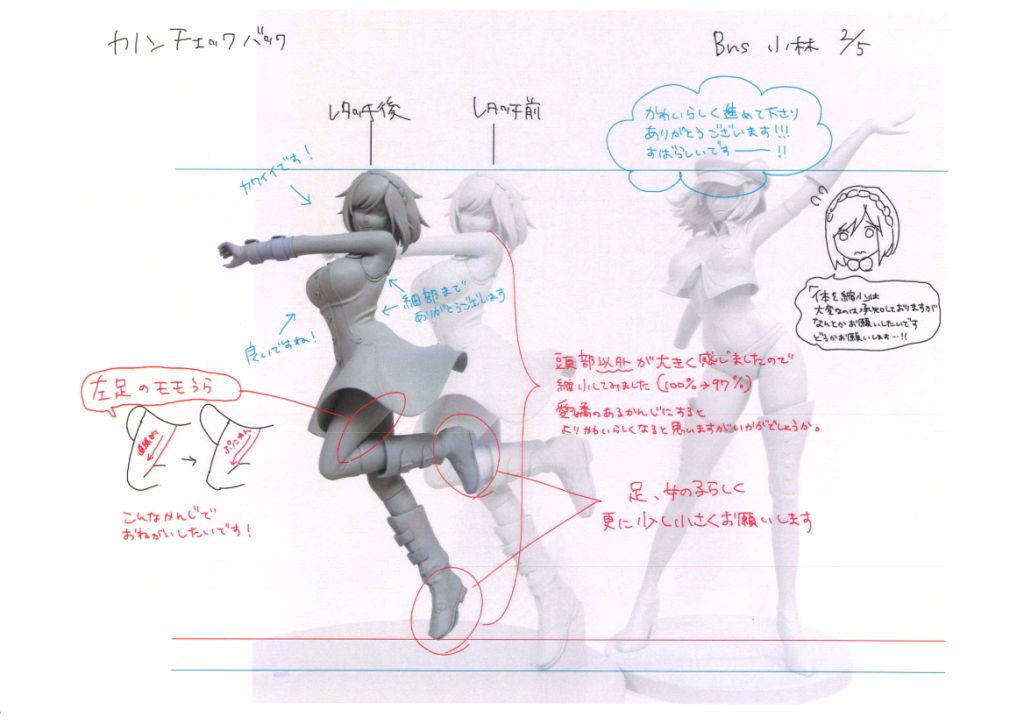 カノンチェックバック
Bns 小林 2/5
レタッチ後
レタッチ前
かわいらしく進めて下さり
ありがとうございます!!!
すばらしいですー!!
カワイイです!
細部まで
ありがとうございます
良いですね!
「体を縮小」は
大変なのは承知しておりますが
なんとかお願いしたいです
どうかお願いします…!!
頭部以外が大きく感じましたので
縮小してみました(100%→97%)
愛嬌のあるかんじにすると
よりかわいらしくなると思いますがいかがでしょうか。
左足のモモうら
直線的
→
ぷたぁん
こんなかんじで
おねがいしたいです!
足、女の子らしく
更に少し小さくお願いします